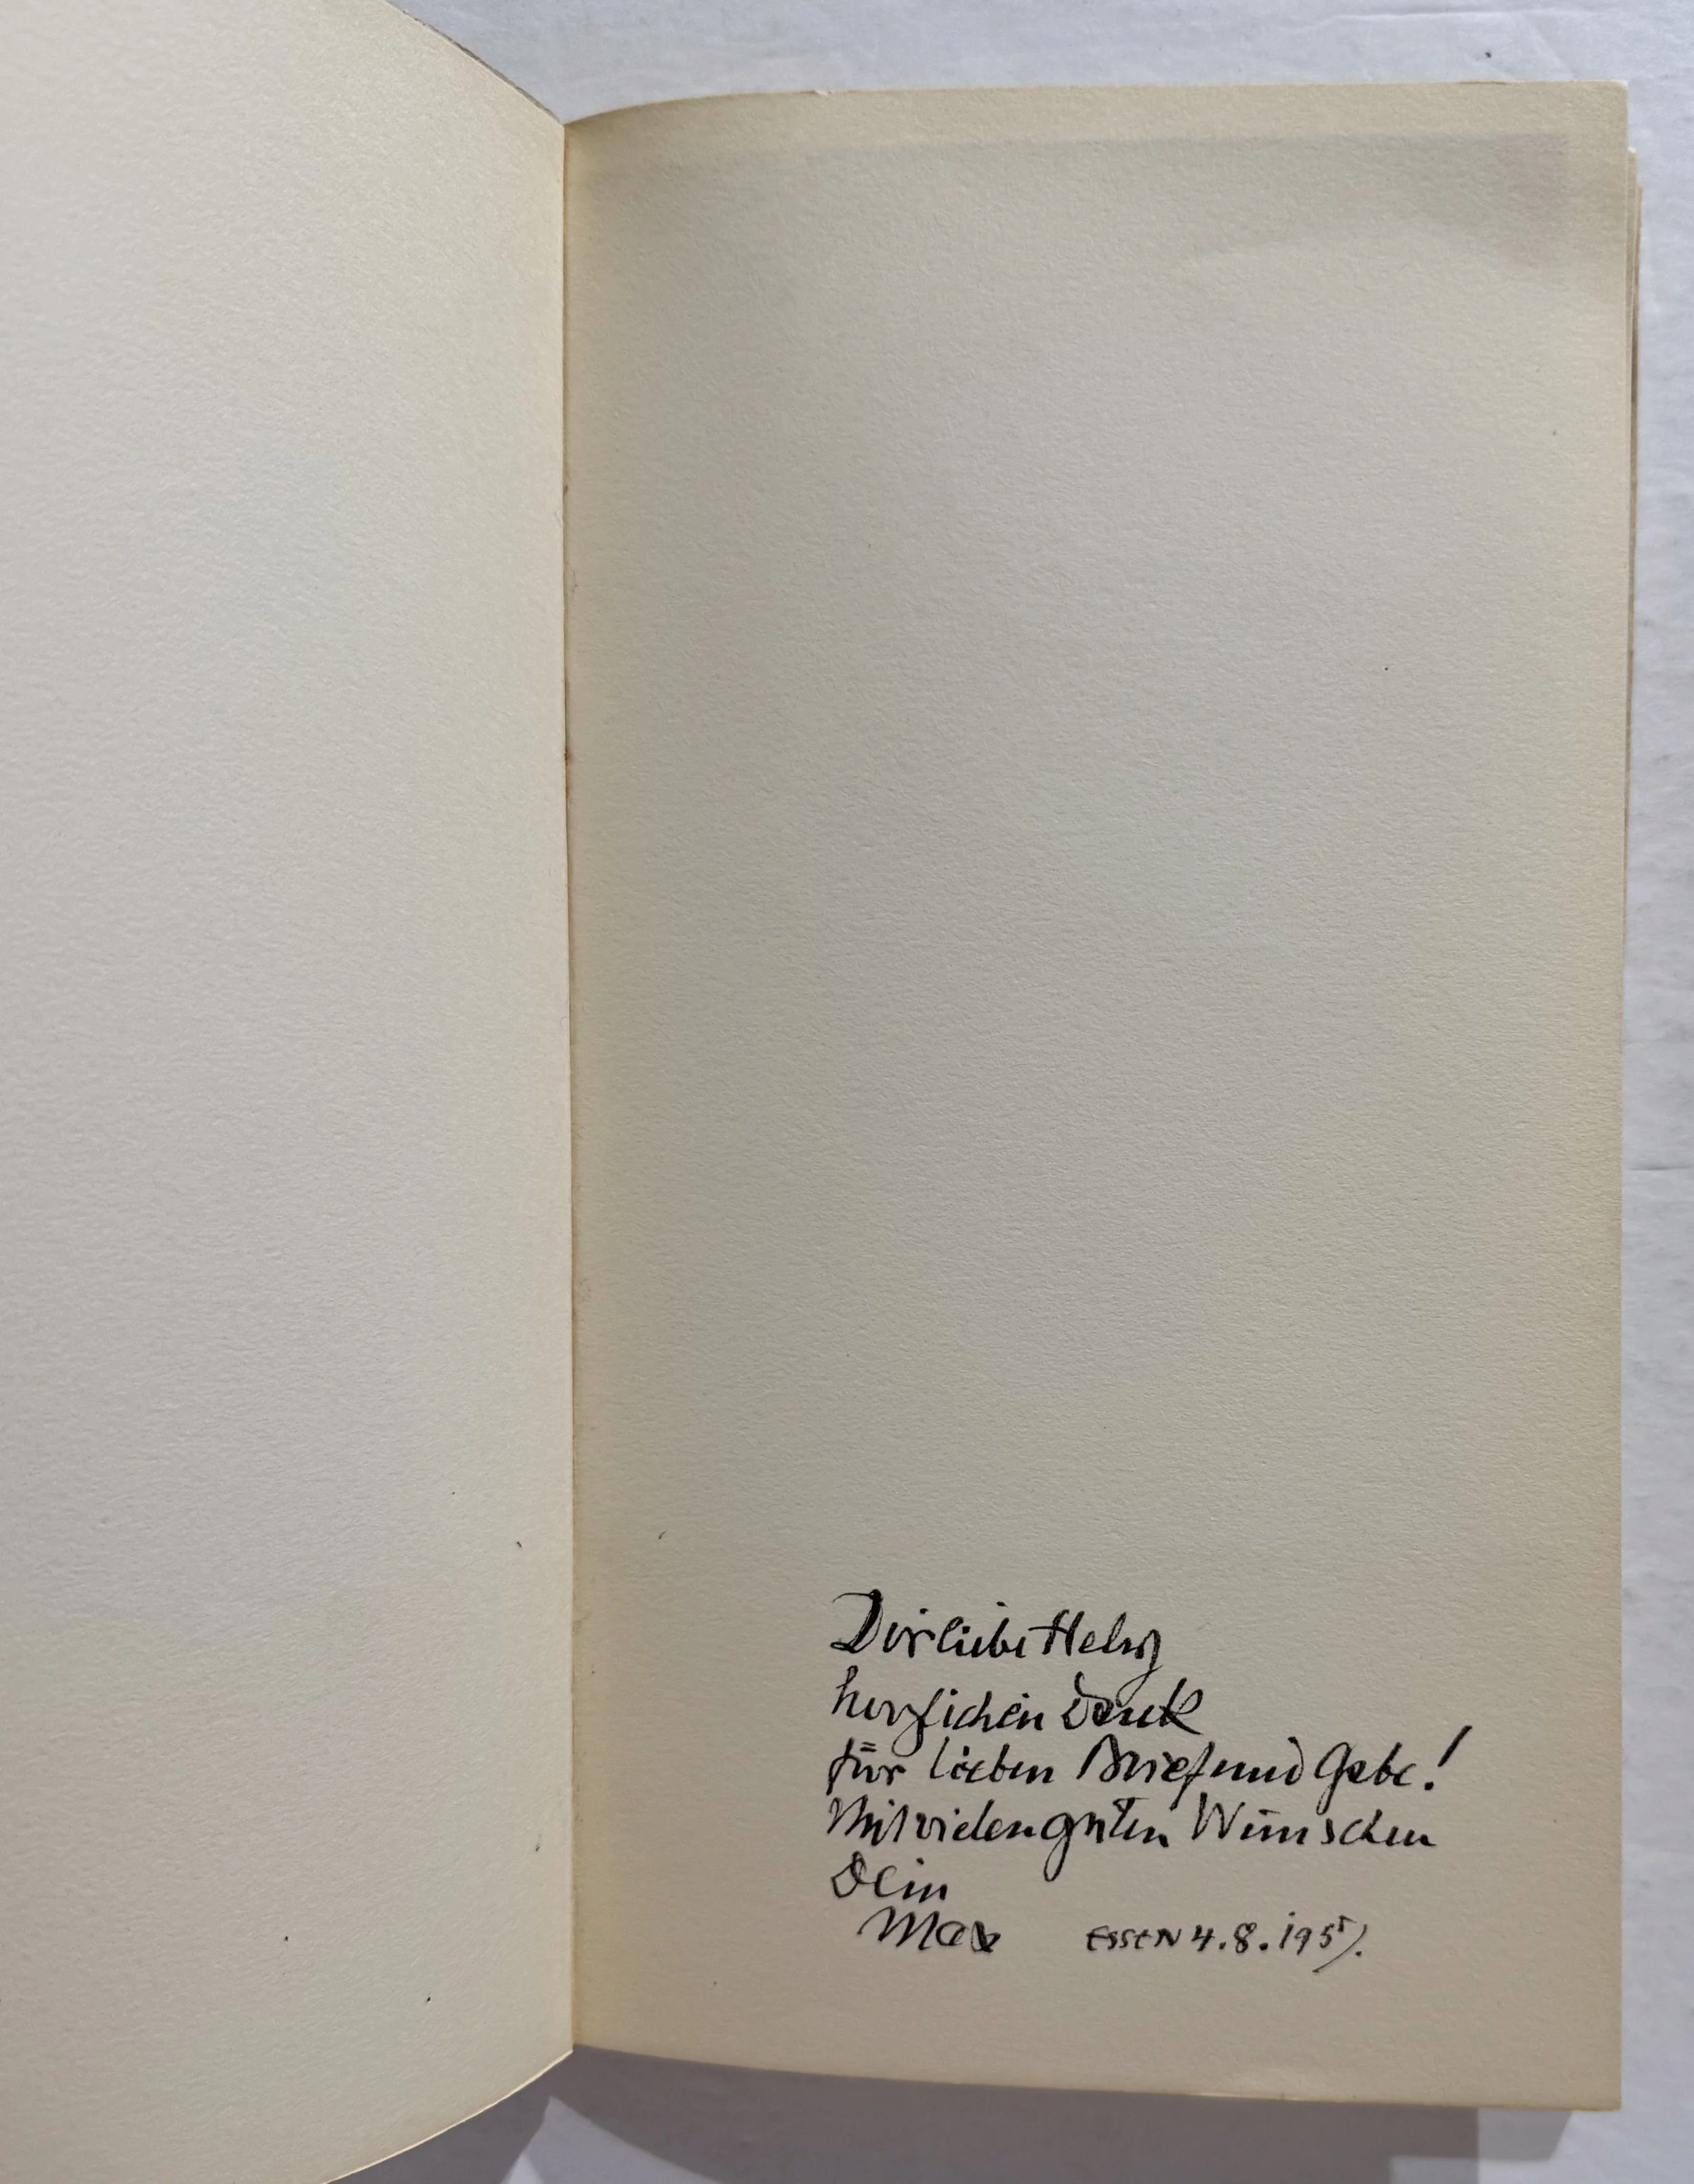 Dir liebe Helg
herzlichen Dank
für lieben Brief und Gabe!
Mit vielen guten Wünschen
Dein
Max ESSEN 4.8.195